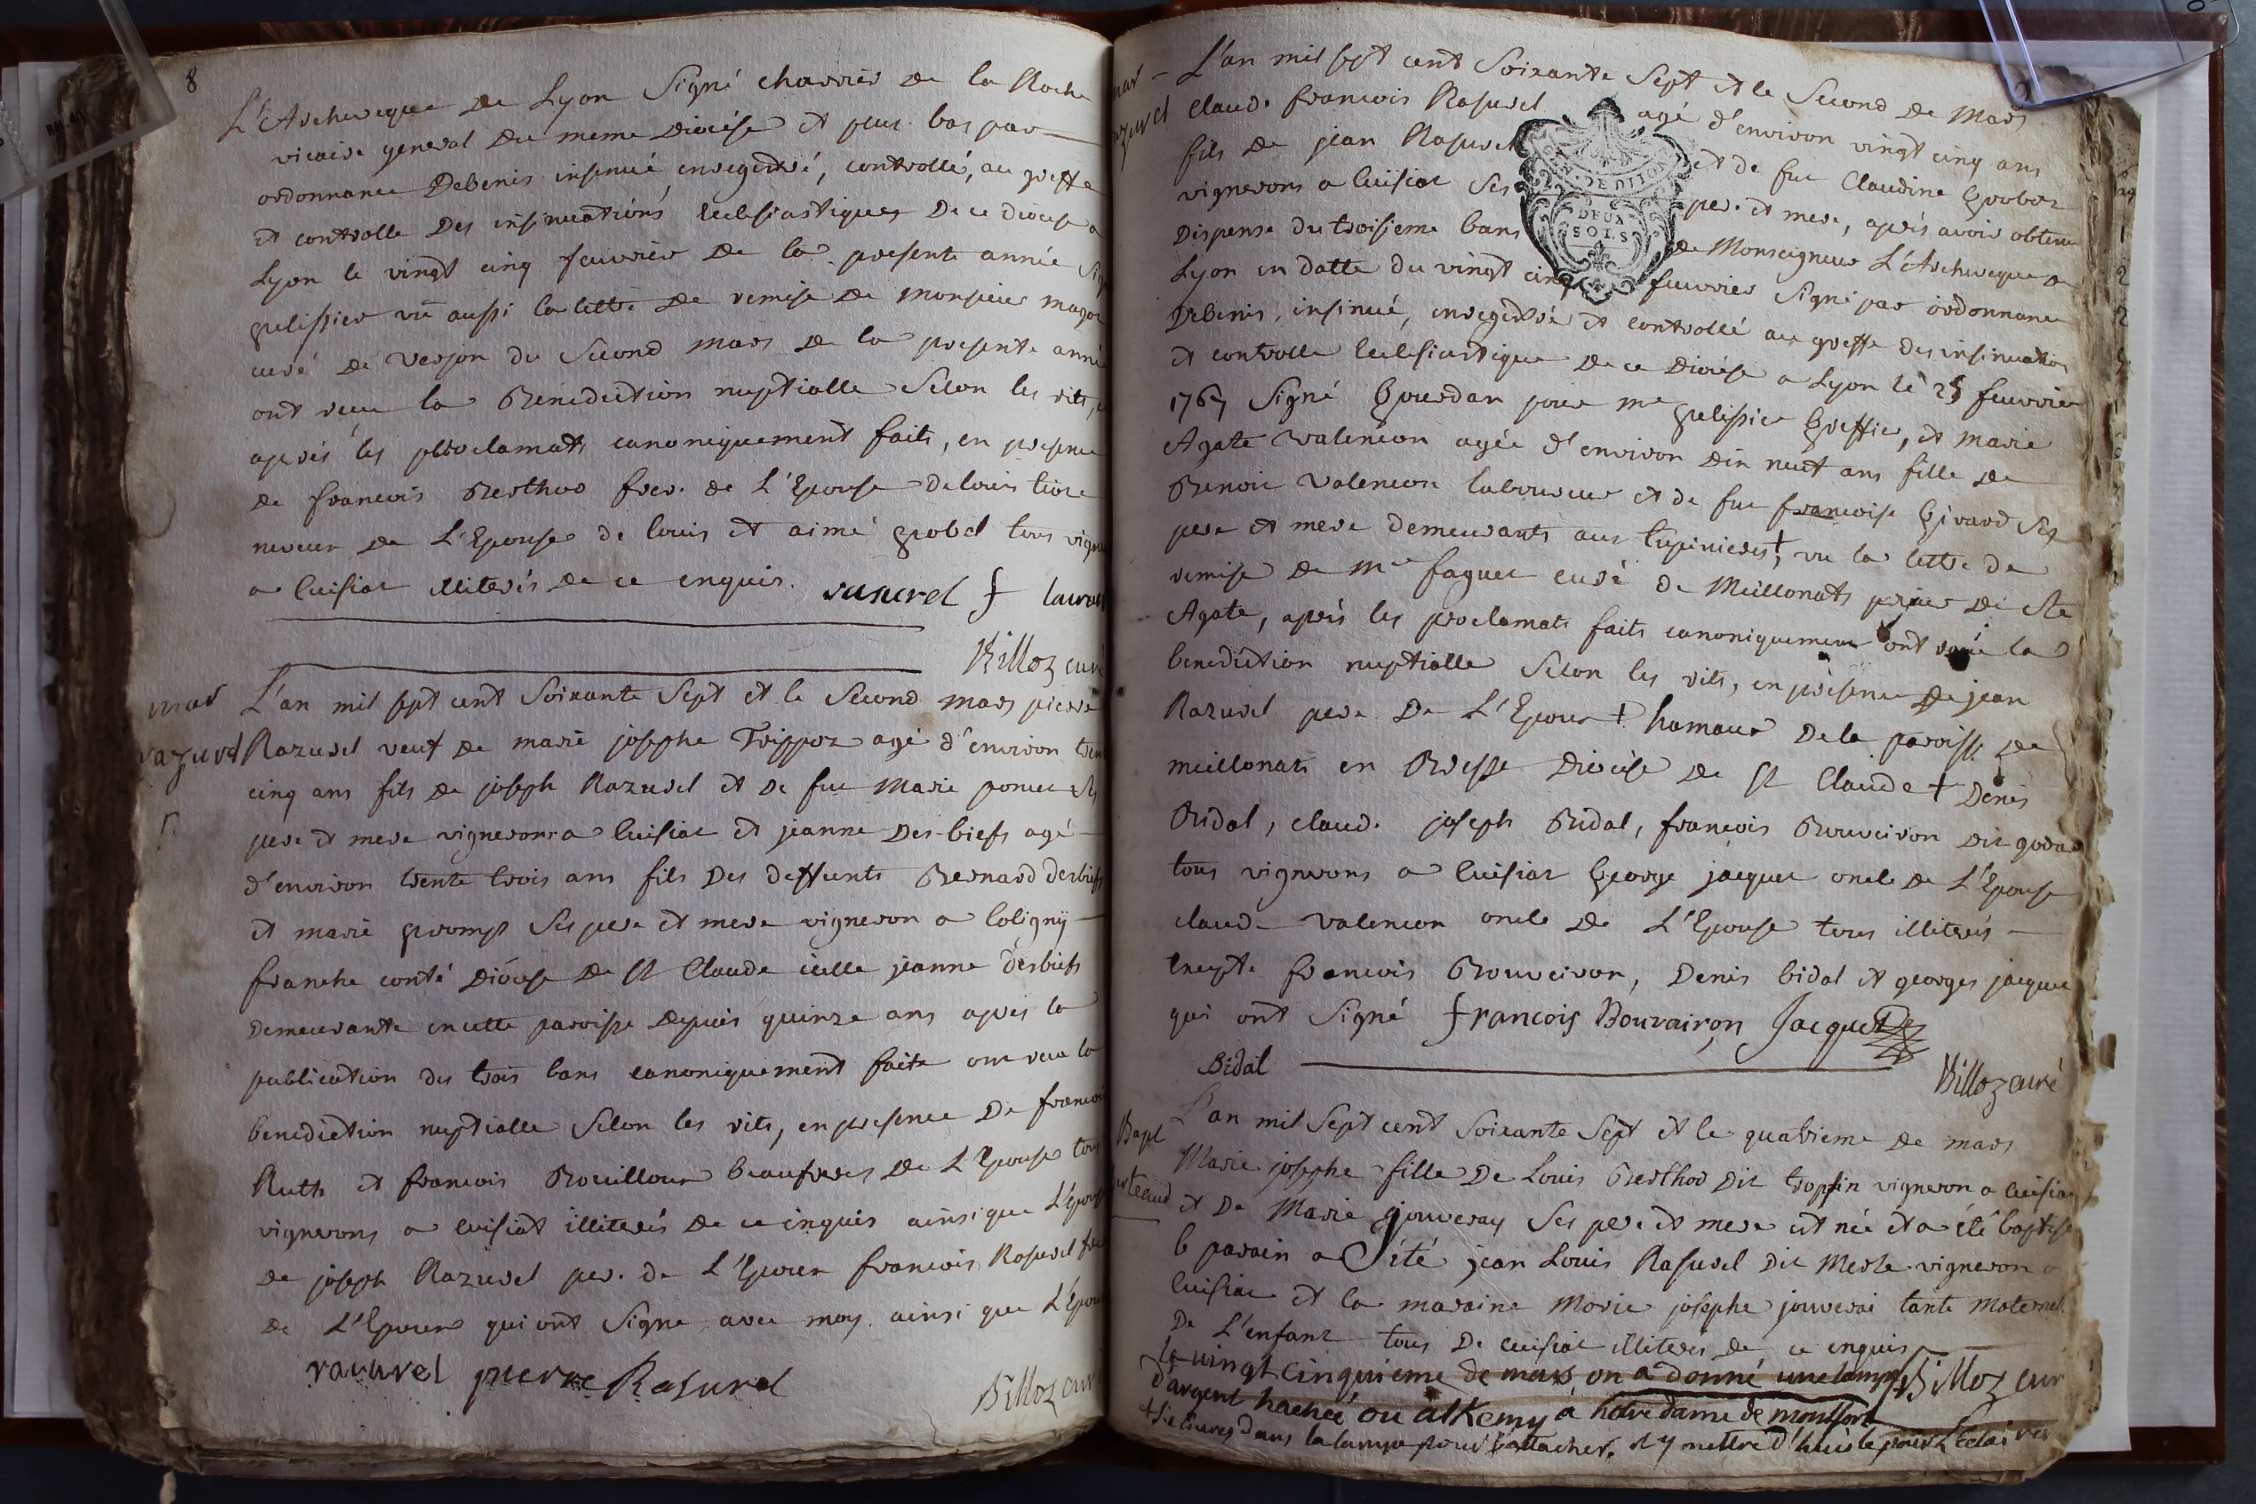 8
L'Archeveque de Lyon Signé charrier de la Roche
vicaire general du meme Diocése et plus bas par
ordonnance Debenis insinué, enregitré, controllé, au greffe
et controlle Des insinuations Ecclesiastiques De ce diocese a
Lyon le vingt cinq feuvrier de la presente année
vû aussi la lettre de remise de monsieur
curé de Verjon du Second mars de la presente année
ont recu la Benediction nuptialle Selon les rits,
aprés les proclamats canoniquement faits, en presence
de francois Berthod frere de L'Epouse de louis
neveux de L'Epouse de louis et aimé gobel tous
a Cuisiat illiterés de ce enquis. rasurel
Billoz curé
mar
razurel
L'an mil sept cent Soixante Sept et le Second mars pierre
Razurel veuf de marie josephe agé d'environ
cinq ans fils de joseph Razurel et de fue Marie
pere et mere vignerons a Cuisiat et jeanne Des biefs agé
d'environ trente trois ans fils Des deffunts Bernard desbiefs
et marie Ses pere et mere vigneron a Coligny
franche conté Diocése De St Claude icelle jeanne desbiefs
Demeurante en cette paroisse depuis quinze ans aprés la
publication des trois bans canoniquement faite ont recu la
benediction nuptialle Selon les rits, en presence De francois
Ruth et francois Bouilloux beaufreres de L'Epouse tous
vignerons a cuisiat illiterés de ce enquis ainsi que L'Epouse
de joseph Razurel pere de L'Epoux francois Rasurel
de L'Epoux qui ont Signe avec moy ainsi que L'Epoux
rasurel pierre Rasurel
Billoz curé
mar
L'an mil sept cent Soixante Sept et le Second de Mars
Claude francois Rasurel agé d'environ vingt cinq ans
fils de jean Rasurel et de fue Claudine
vignerons a Cuisiat Ses pere et mere, aprés avoir obtenu
Dispense du troisieme bans de Monseigneur L'Archeveque de
Lyon en datte du vingt cinq feuvrier Signé par ordonnance
Debenis, insinué, enregitré et controllé au greffe des insinuations
et controlle Ecclesiastique de ce Diocése a Lyon le 25 feuvrier
1767 Signé Gourdan pour mr greffier, et Marie
Agate Valencon agée d'environ dix neuf ans fille de
Benoit Valencon laboureur et de fue francoise Girard Ses
pere et mere demeurants aux tupinieres +, vu la lettre de
remise de Mre faguet curé de Meillonats prieur de Ste
Agate, aprés les proclamats faits canoniquement ont recu la
benediction nuptialle Selon les rits, en présence de jean
Razurel pere de L'Epoux + hamaux De la paroisse de
meillonats en Bresse Diocése de St Claude + Denis
Bidal, claude joseph Bidal, francois Bouveiron dit
tous vignerons a Cuisiat George jacquet oncle de L'Epouse
claude Valencon oncle de L'Epouse tous illiterés
Excepte francois Bouveiron, Denis bidal et georges jacquet
qui ont Signé francois Bouvairon Jacquet
Bidal
Billoz curé
Bapt
L'an mil Sept cent Soixante Sept et le quatrieme de mars
Marie josephe fille De Louis Berthod Dit vigneron a Cuisiat
et De Marie jouveray Ses pere et mere est née et a été baptisé
le parain a été jean Louis Rasurel Dit Merle vigneron a
Cuisiat et la maraine Marie josephe jouverai tante Maternel
De L'enfant tous De Cuisiat illiterés de ce enquis
Billoz cur
le vingt cinquieme de mars on a donné une lampe
d'argent haché ou alkemy à notre dame de montfort
dans la lampe pour l'attacher, et y mettre d'huile pour l'éclairer
GEN. DE DIJON
DEUX
SOLS